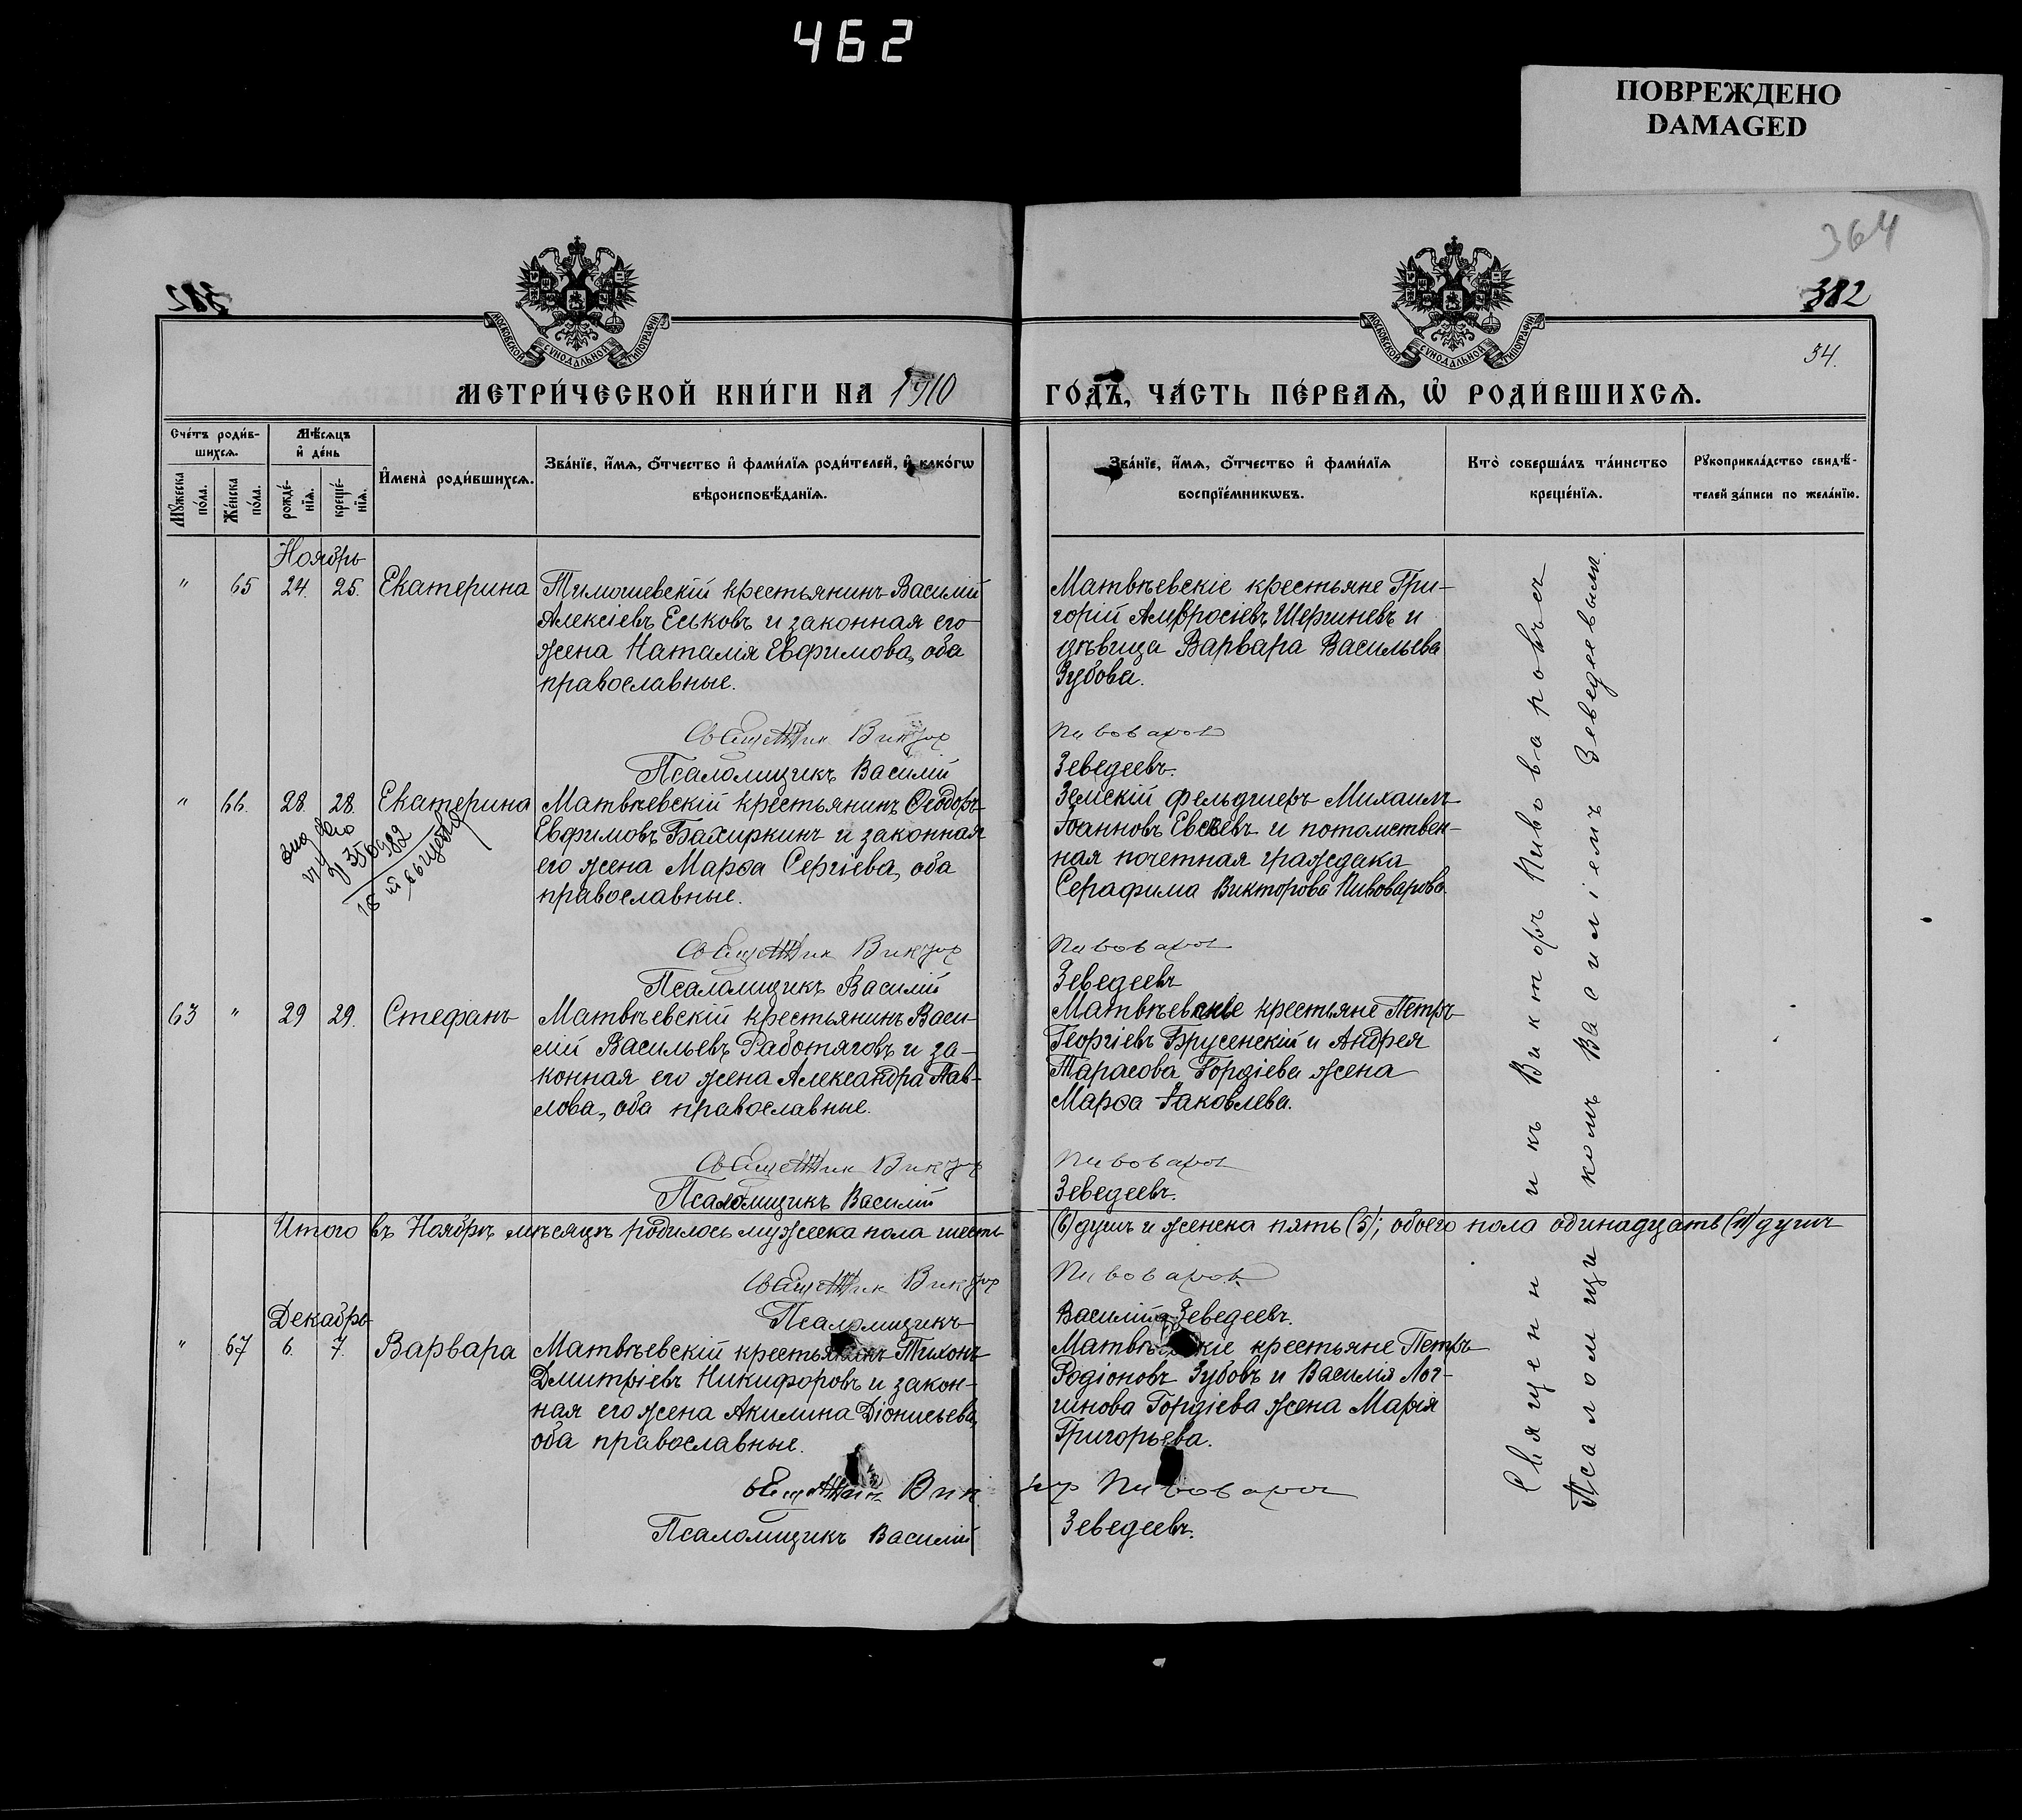 462
ПОВРЕЖДЕНО
DAMAGED
364
382
382
34.
МОСКОВСКОЙ СѴНОДАЛЬНОЙ ТИПОГРАФІИ
МОСКОВСКОЙ СѴНОДАЛЬНОЙ ТИПОГРАФІИ
МЕТРИ́ЧЕСКОЙ КНИ́ГИ НА 1910
ГО́ДЪ, ЧА́СТЬ ПЕ́РВАѦ, Ѽ РОДИ́ВШИХСѦ.
Сче́тъ роди́в-
шихсѧ.
Мѣ́сѧцъ
и҆ де́нь
Мꙋ́жеска
по́ла.
Же́нска
по́ла.
рожде́-
нїѧ.
креще́-
нїѧ.
И҆мена̀ роди́вшихсѧ.
Зва́нїе, и҆́мѧ, ѻ҆́тчество и҆ фами́лїѧ роди́телей, и҆ како́гѡ
вѣроисповѣ́данїѧ.
Зва́нїе, и҆́мѧ, ѻ҆́тчество и҆ фами́лїѧ
воспрїе́мникѡвъ.
Кто̀ соверша́лъ та́инство
креще́нїѧ.
Рꙋкоприкла́дство свидѣ́-
телей за́писи по жела́нїю.
Ноябрь
" 65 24. 25. Екатерина
Тимошевскій крестьянинъ Василій
Алексіевъ Еськовъ и законная его
жена Наталія Евфимова, оба
православные.
Священник Виктор
Псаломщикъ Василій
Матвѣевскіе крестьяне Гри-
горій Амвросіевъ Шергиневъ и
дѣвица Варвара Васильева
Зубова.
Пивоваров
Зеведеевъ.
" 66. 28. 28. Екатерина
Матвѣевскій крестьянинъ Ѳеодоръ
Евфимовъ Бахиркинъ и законная
его жена Марѳа Сергіева, оба
православные.
Священник Виктор
Псаломщикъ Василій
Земскій фельдшеръ Михаилъ
Іоанновъ Евсѣевъ и потомствен-
ная почетная граждака
Серафима Викторова Пивоварова.
Пивоваров
Зеведеевъ
63 " 29 29. Стефанъ
Матвѣевскій крестьянинъ Васи-
лій Васильевъ Работяговъ и за-
конная его жена Александра Пав-
лова, оба православные.
Священник Виктор
Псаломщикъ Василій
Матвѣевскіе крестьяне Петръ
Георгіевъ Брусенскій и Андрея
Тарасова Гордіева жена
Марѳа Іаковлева.
Пивоваров
Зеведеевъ.
Итого въ Ноябрѣ мѣсяцѣ родилось мужеска пола шесть
(6) душъ и женска пять (5); обоего пола одинадцать (11) душъ
Священник Виктор
Псаломщикъ
Пивоваров.
Василій Зеведеевъ.
Декабрь
" 67 6. 7. Варвара
Матвѣевскій крестьянинъ Тихонъ
Дмитріевъ Никифоровъ и закон-
ная его жена Акилина Діонисьева,
оба православные.
Священник Вик
Псаломщикъ Василій
Матвѣевскіе крестьяне Петръ
Родіоновъ Зубовъ и Василія Лог-
гинова Гордіева жена Марія
Григорьева.
тор Пивоваров
Зеведеевъ.
Священникъ Викторъ Пивоваровъ съ
Псаломщикомъ Василіемъ Зеведеевымъ.